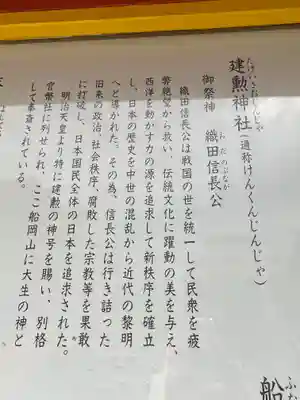 たけいさおじんじゃ
建勲神社(通称けんくんじんじゃ)
おだのぶなが
御祭神 織田信長公
織田信長公は戦国の世を統一して民衆を疲
弊絶望から救い、伝統文化に躍動の美を与え、
西洋を動かす力の源を追求して新秩序を確立
し、日本の歴史を中世の混乱から近代の黎明
へと導かれた。その為、信長公は行き詰った
旧来の政治、社会秩序、腐敗した宗教等を果敢
に打破し、日本国民全体の日本を追求された。
明治天皇より特に建勲の神号を賜い、別格
官幣社に列せられ、ここ船岡山に大生の神と
して奉斎されている。
ふな
船